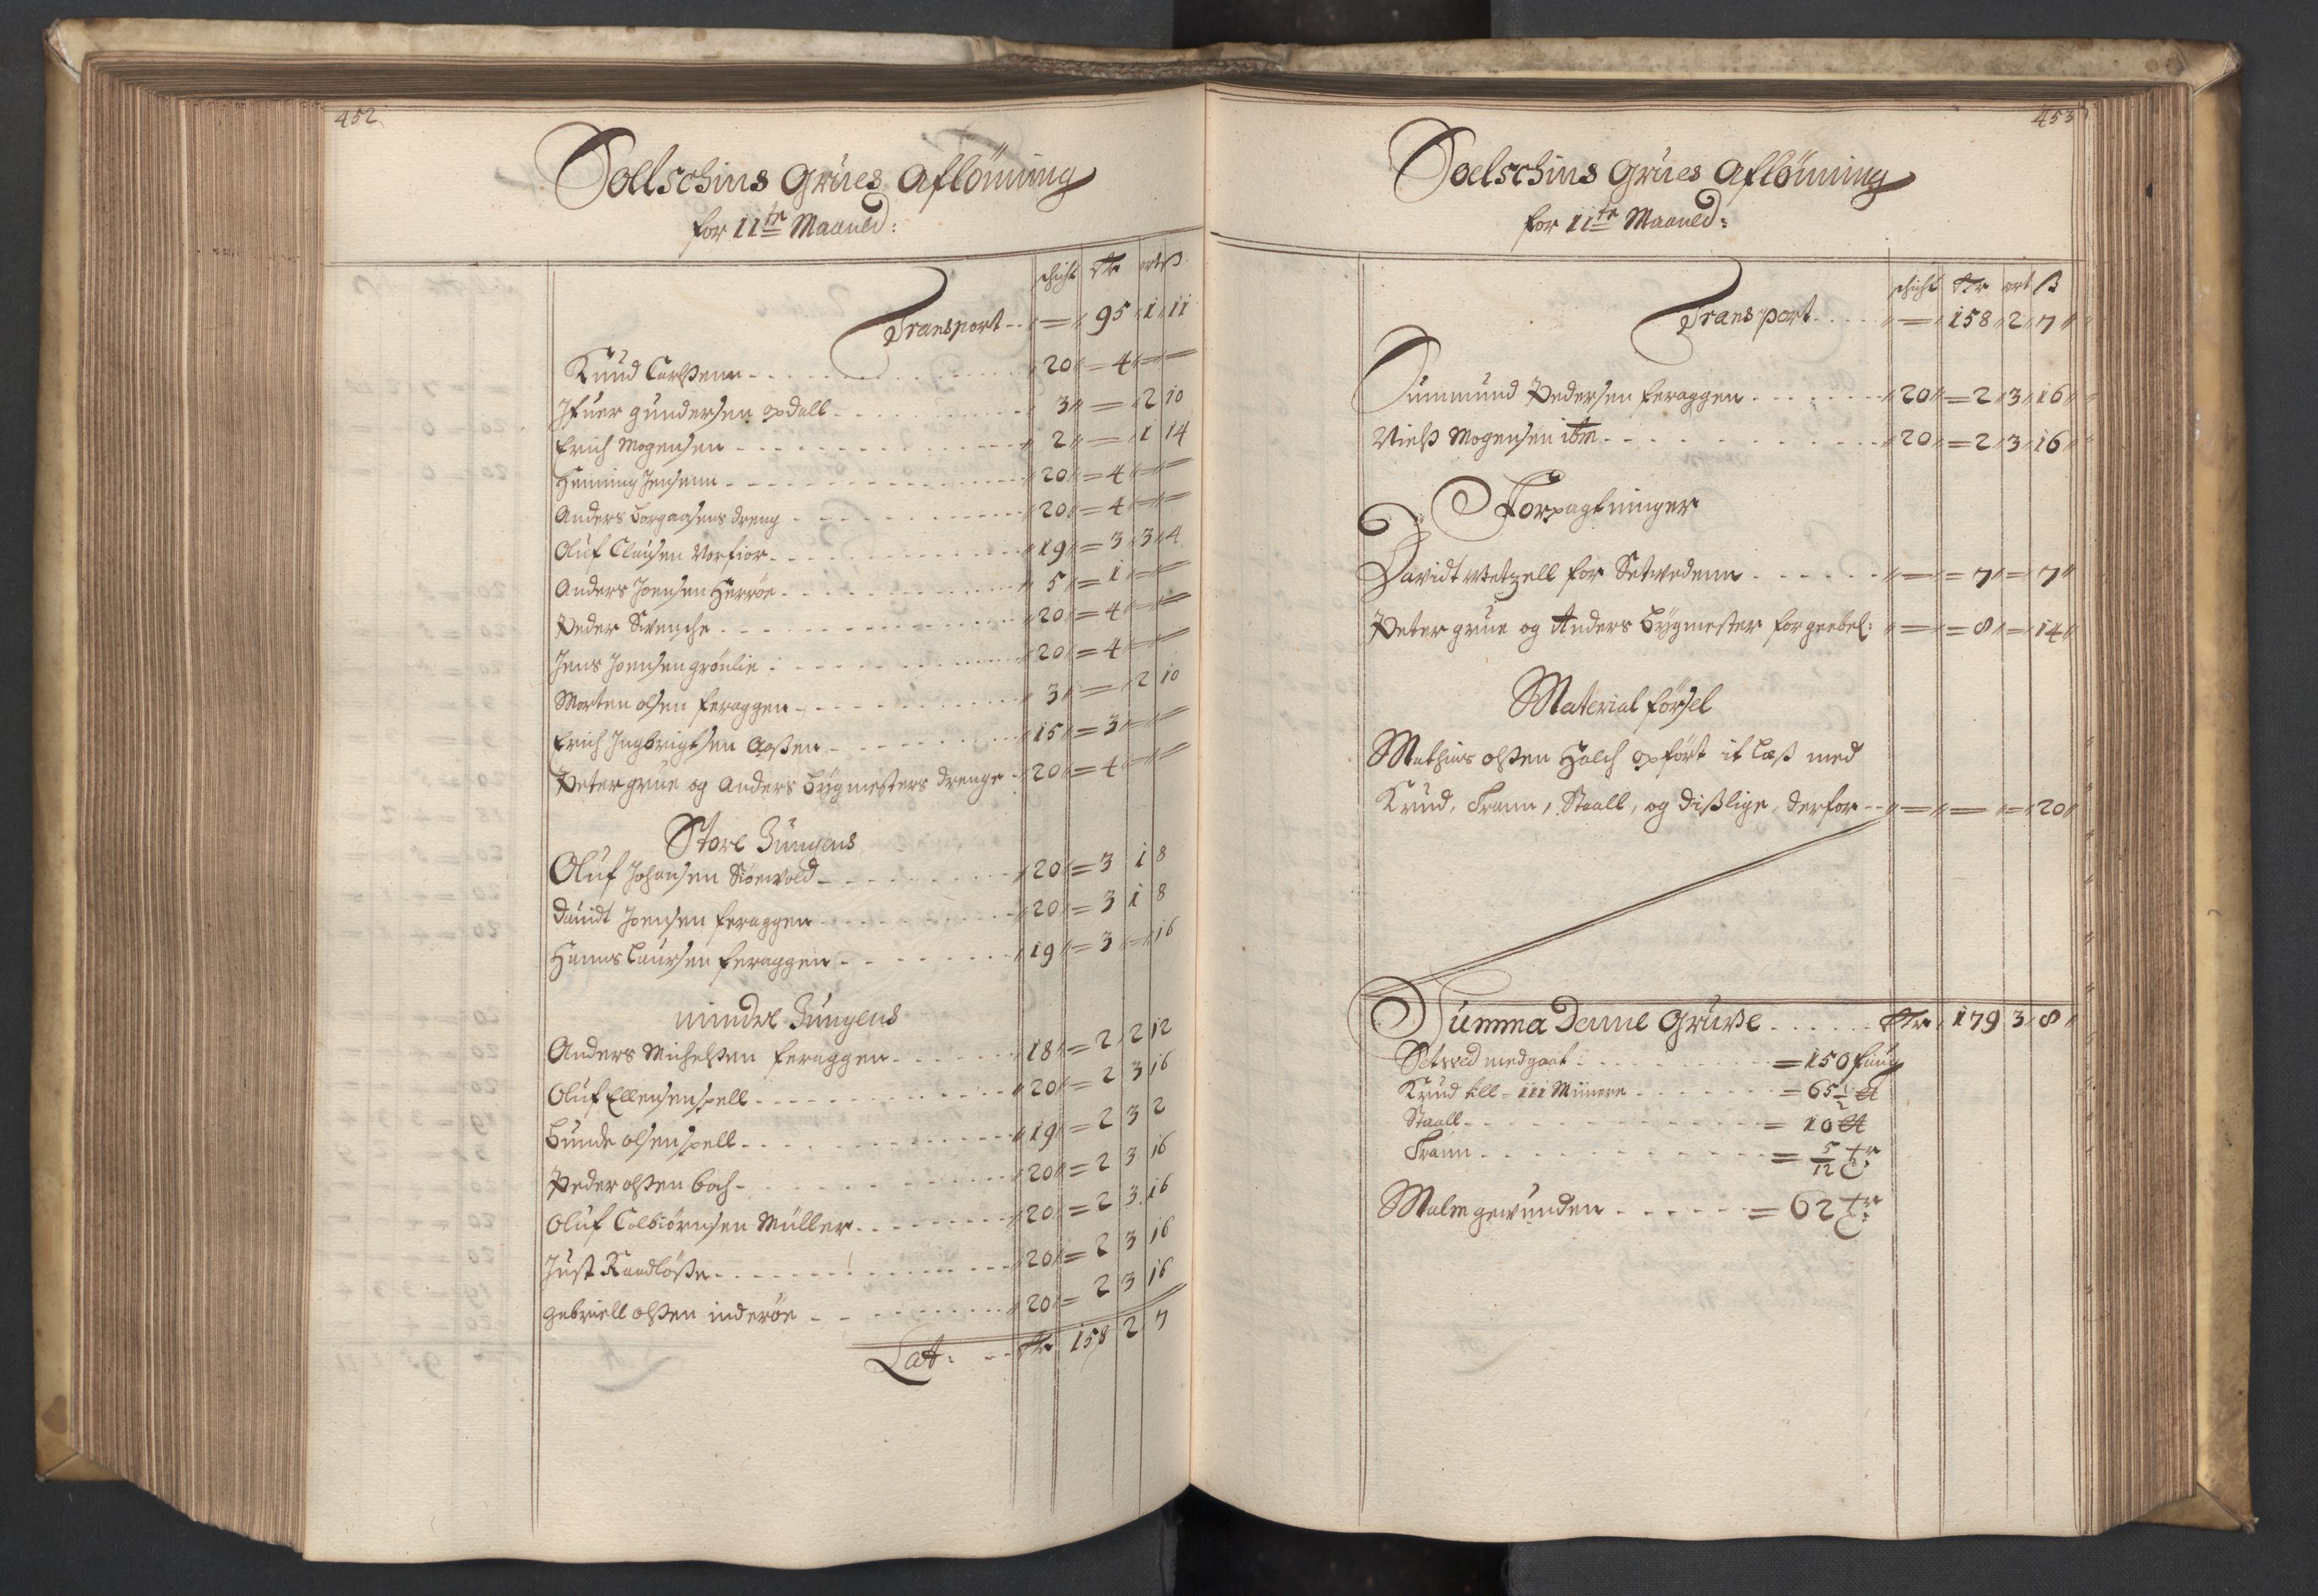 452
Soelschins Grues Aflönning
for 11te Maaned:
schicht dlr ort ß
Transport 95 1 11
Knud Carlsenn 20 4
Ifuer Gundersen opdall 3 2 10
Erich Mogensen 2 1 14
Henning Jensenn 20 4
Anders Borgaasens dreng 20 4
Oluf Clausen 19 3 3 4
Anders Joensen Herröe 5 1
Peder Svensche 20 4
Jens Joensen grönlie 20 4
Morten olsen feraggen 3 2 10
Erich Ingbrigtsen Aaßen 15 3
Peter grue og Anders Bÿgmesters drenge 20 4
Store Jungens
Oluf Johansen 20 3 1 8
Dauidt Joensen feraggen 20 3 1 8
Hanns Laursen feraggen 19 3 16
mindre Jungens
Anders Michelßen feraggen 18 2 2 12
Oluf Ellensen spell 20 2 3 16
Bunde olsen spell 19 2 3 2
Peder olßen bach 20 2 3 16
Oluf Colbiörnsen Müller 20 2 3 16
Just Raadlößr 20 2 3 16
gabriell olßen inderöe 20 2 3 16
Lat: dlr 158 2 7
453
Soelschins Grues Aflönning
for 11te Maaned:
schicht dlr ort ß
Transport 158 2 7
Gummund Pedersen feraggen 20 2 3 16
Nielß Mogensen itm 20 2 3 16
Forpagtninger
Davidt Wetzell for Setvedenn 7 7
Peter grue og Anders Bÿgmester for geebel: 8 14
Material försel
Mathias olßen Holch opfört it Læß med
Krud, Trann, Staall, og dißlige, derfor 20
Summa Denne Grubе dlr 179 3 8
Setved medgaat 150 faug
Krud till 111 Minere 65 1/2 ℔
Staall 10 ℔
Trann 5/12 tr
Malm gewunden 62 tr